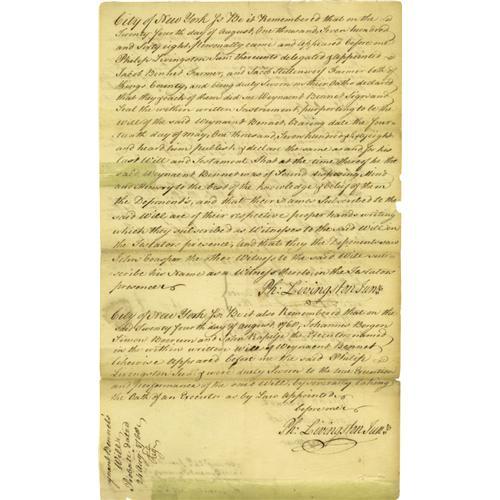 City of New York ss Be it Remembered that on the
Twenty fourth day of August, One thousand, Seven hundred
and Sixty eight, personally came and appeared before me
Philip Livingston Jun. thereunto delegated & appointed
Jacob Bennet Farmer, and Jacob Farmer both of
Kings County, and being duly Sworn on their Oaths declared
that they each of them did see Weynaent Bennet Sign and
Seal the within written Instrument, purporting to be the
Will of the said Weynaent Bennet, bearing date the four
teenth day of May, One thousand, Seven hundred & Sixty eight
and heard him publish & declare the same as and for his
Last Will and Testament. That at the time thereof he the
said Weynaent Bennet was of Sound disposing Mind
and Memory to the best of the knowledge & belief of them
the Deponents, and that their Names Subscribed to the
said Will are of their respective proper hands writing
which they subscribed as Witnesses to the said Will in
the Testators presence, and that they the Deponents saw
John the other Witness to the said Will sub
scribe his Name as a Witness thereto, in the Testators
presence
Ph: Livingston Junr
City of New York ss Be it also Remembered that on the
said Twenty fourth day of August 1768, Johannes Bergen
Simon Boerum and John Rapelje the Executors named
in the within written Will of Weynaent Bennet
likewise Appeared before me the said Philip
Livingston Junr & were duly Sworn to the true Execution
and performance of the said Will, by severally taking
the Oath of an Executor as by Law appointed
before me
Ph: Livingston Junr
Bennets
Will
Probate dated
24 Aug. 1768